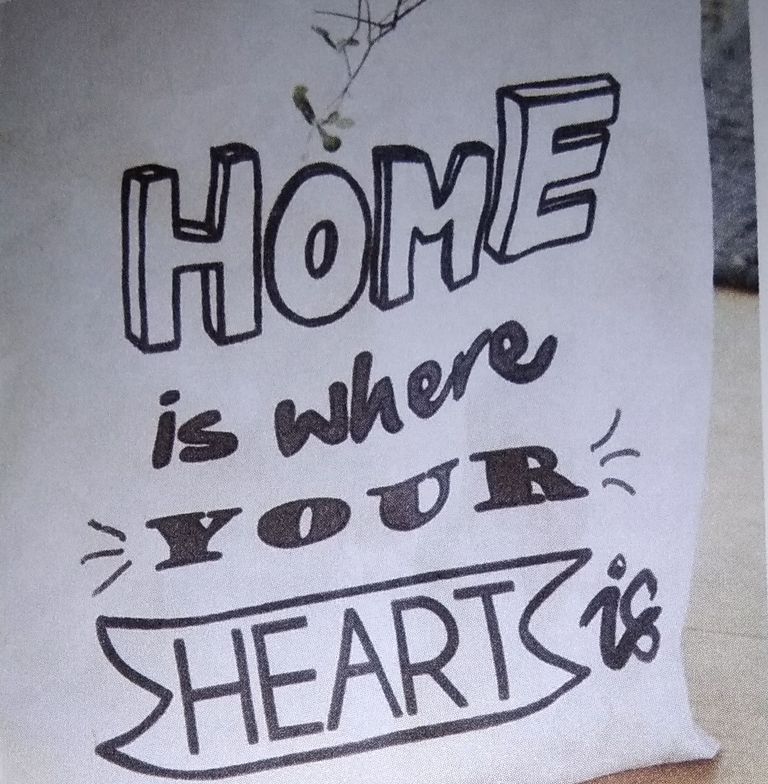 HOME
is where
YOUR
HEART is